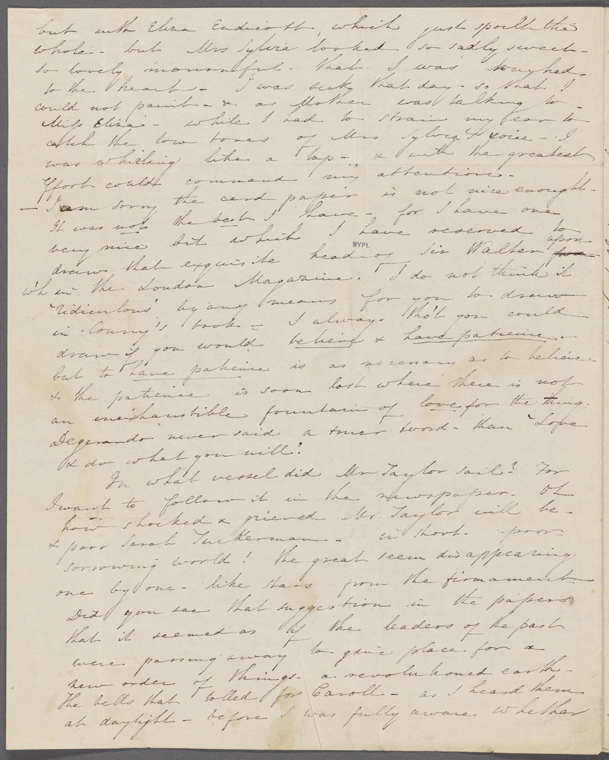 but with Eliza Endicott, which just spoilt the
whole - but Mrs Sylvia looked so sadly sweet -
so lovely mournful - that I was touched
to the heart - I was sick that day - so that I
could not paint - & as Mother was talking to -
Miss Eliza - while I had to strain my ear to
catch the low tones of Mrs Sylvia's voice - I
was whirling like a top - & with the greatest
effort could command my attention -
- I am sorry the card paper is not nice enough -
It was not the best I have - for I have one
very nice bit which I have reserved to
NYPL
draw that exquisite head of Sir Walter upon
wh in the London Magazine. I do not think it
"ridiculous" by any means for you to draw
in Coury's book - I always tho't you could
draw if you would believe & have patience -
but to have patience is as necessary as to believe -
& the patience is soon lost where there is not
an inexhaustible fountain of love for the thing.
Degerando never said a truer word - than "Love
& do what you will".
In what vessel did Mr Taylor sail? For
I want to follow it in the newspaper. Oh
how shocked & grieved Mr Taylor will be -
& poor Sarah Tuckerman - in short - poor
sorrowing world! The great seem disappearing
one by one - like stars from the firmament
Did you see that suggestion in the papers
that it seemed as if the leaders of the past
were passing away to give place for a
new order of things - a revolutioned earth -
The bells that tolled for Caroll - as I heard them
at daylight - before I was fully aware whether